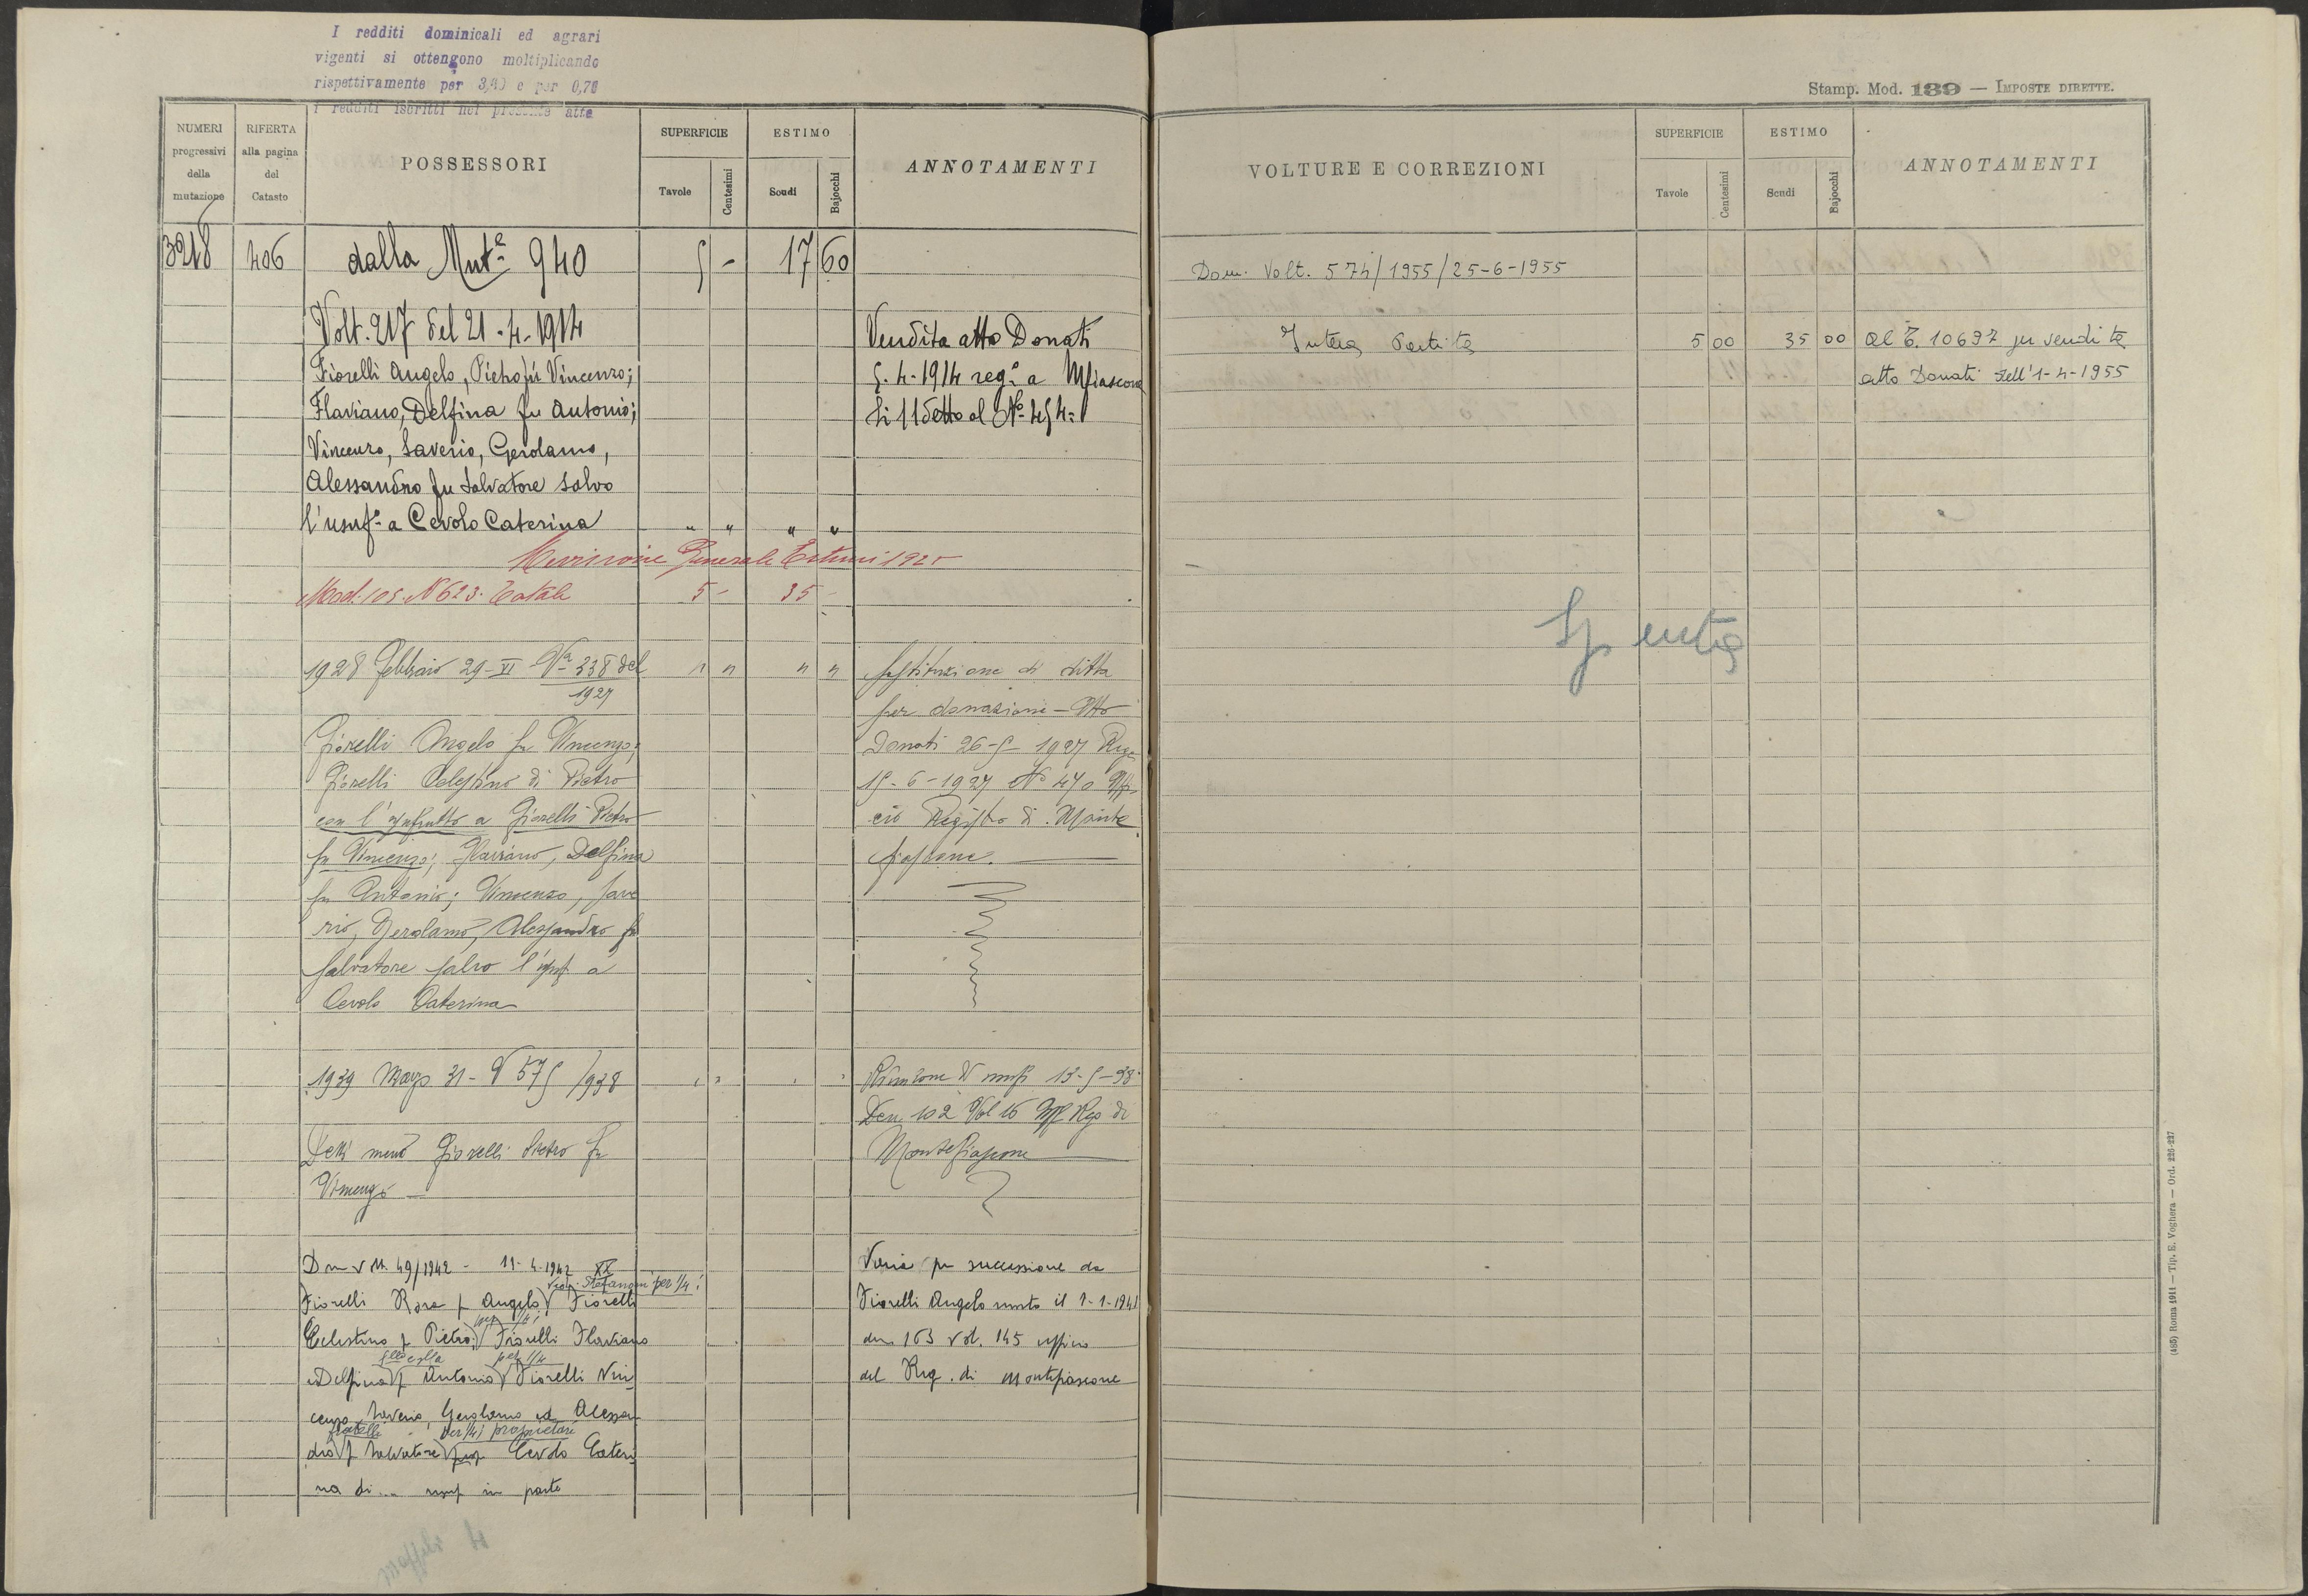 I redditi dominicali ed agrari
vigenti si ottengono moltiplicando
rispettivamente per 3,40 e per 0,70
i redditi iscritti nel presente atto
Stamp. Mod. 139 — IMPOSTE DIRETTE.
NUMERI progressivi della mutazione
RIFERTA alla pagina del Catasto
POSSESSORI
SUPERFICIE
Tavole
Centesimi
ESTIMO
Scudi
Bajocchi
ANNOTAMENTI
3218 406 dalla Mut.e 940 5 - 17 60
Volt. 217 del 21-4-1914
Fiorelli Angelo, Pietro fu Vincenzo;
Flaviano, Delfina fu Antonio;
Vincenzo, Saverio, Gerolamo,
Alessandro fu Salvatore salvo
l'usuf.o a Cevolo Caterina " " " "
Vendita atto Donati
5-4-1914 reg.o a Mfiascone
li 11 detto al No. 454=
Revisione Generale Estimi 1925
Mod. 105. N 623. Totale 5 - 35 -
1928 Febbraio 29-VI Na 338 del
1927
Fiorelli Angelo fu Vincenzo;
Fiorelli Celestino di Pietro
con l'usufrutto a Fiorelli Pietro
fu Vincenzo; Flaviano, Delfina
fu Antonio; Vincenzo, Save
rio, Gerolamo, Alessandro fu
Salvatore salvo l'usuf. a
Cevolo Caterina
Sostituzione di ditta
per donazione - Atto
Donati 26-5-1927 Reg.
15-6-1927 No 470 Uffi
cio Registro di Monte
fiascone.
1939 Marzo 31 - V 575/938
Detti meno Fiorelli Pietro fu
Vincenzo
Riunione d'usuf. 13-5-38
Den. 102 Vol 16 Uff Rgo di
Montefiascone
Dm v N. 49/1942 - 11-4-1942 XX
ved. Stefanoni per 1/4;
Fiorelli Rosa f Angelo Fiorelli
per 1/4;
Celestino f Pietro; Fiorelli Flaviano
per 1/4
e Delfina f Antonio Fiorelli Vin
cenzo, Saverio, Gerolamo ed Alessan
fratelli per 1/4; proprietari
dro f Salvatore Cevolo Cateri
na di... usuf in parte
Varia per successione da
Fiorelli Angelo morto il 1-1-1941
den 163 vol. 145 ufficio
del Reg. di Montefiascone
VOLTURE E CORREZIONI
SUPERFICIE
Tavole
Centesimi
ESTIMO
Scudi
Bajocchi
ANNOTAMENTI
Dom. Volt. 574/1955/25-6-1955
Intera Partita 5 00 35 00 Al P. 10697 per vendita
atto Donati dell'1-4-1955
Spenta
(485) Roma 1911 — Tip. E. Voghera — Ord. 226-227